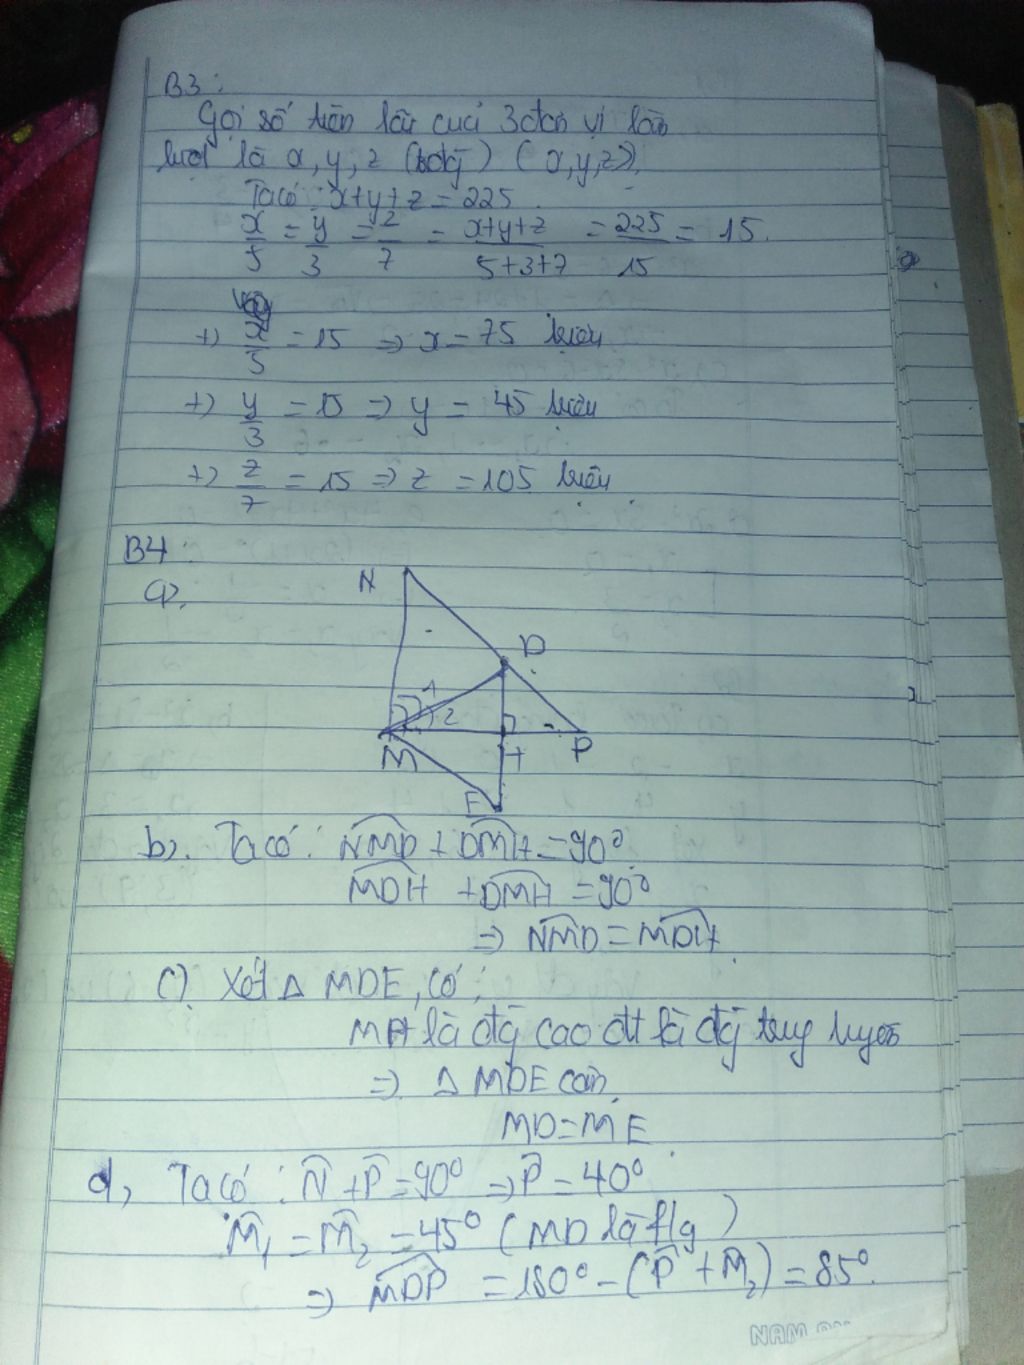 B3:
Gọi số tiền lãi của 3 đơn vị lần
lượt là x, y, z (x,y,z>
Ta có: x+y+z = 225
x/5 = y/3 = z/7 = x+y+z/5+3+7 = 225/15 = 15.
+) x/5 = 15 => x = 75 triệu
+) y/3 = 15 => y = 45 triệu
+) z/7 = 15 => z = 105 triệu.
B4:
a),
N
D
1
2
M
H
P
E
b). Ta có: NMD + DMH = 90°
MDH + DMH = 90°
=> NMD = MDH
c) Xét Δ MDE, có:
MH là đg cao đt là đg trug tuyến
=> Δ MDE cân
MD = ME
d, Ta có: N + P = 90° => P = 40°
M₁ = M₂ = 45° (MD là f/g)
=> MDP = 180° - (P + M₂) = 85°.
NAM